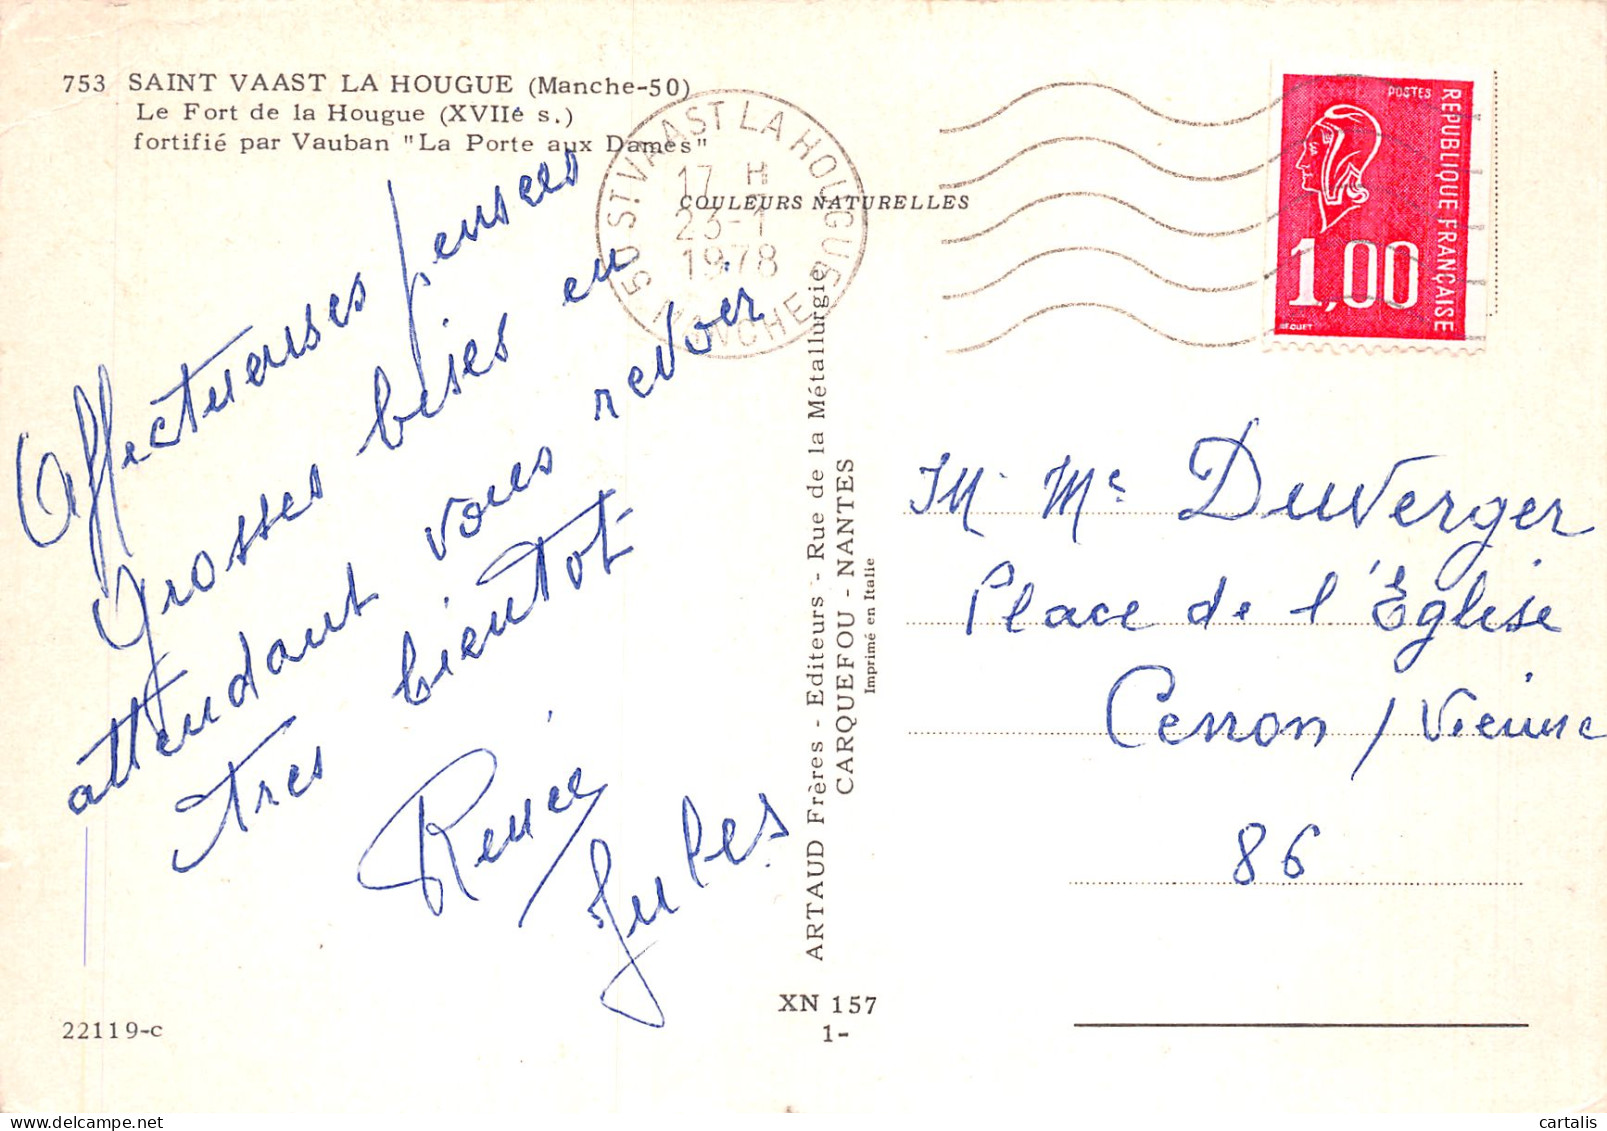 753 SAINT VAAST LA HOUGUE (Manche-50)
Le Fort de la Hougue (XVIIè s.)
fortifié par Vauban "La Porte aux Dames"
COULEURS NATURELLES
50 ST. VAAST LA HOUGUE
17 H
23-1
1978
MANCHE
POSTES
REPUBLIQUE FRANÇAISE
1,00
BEQUET
Affectueuses pensées
Grosses bises en
attendant vous revoir
très bientot.
Renée
Jules
ARTAUD Frères - Editeurs - Rue de la Métallurgie
CARQUEFOU - NANTES
Imprimé en Italie
M. Me Duverger
Place de l'Eglise
Cenon / Vienne
86
22119-c
XN 157
1-
cartalis